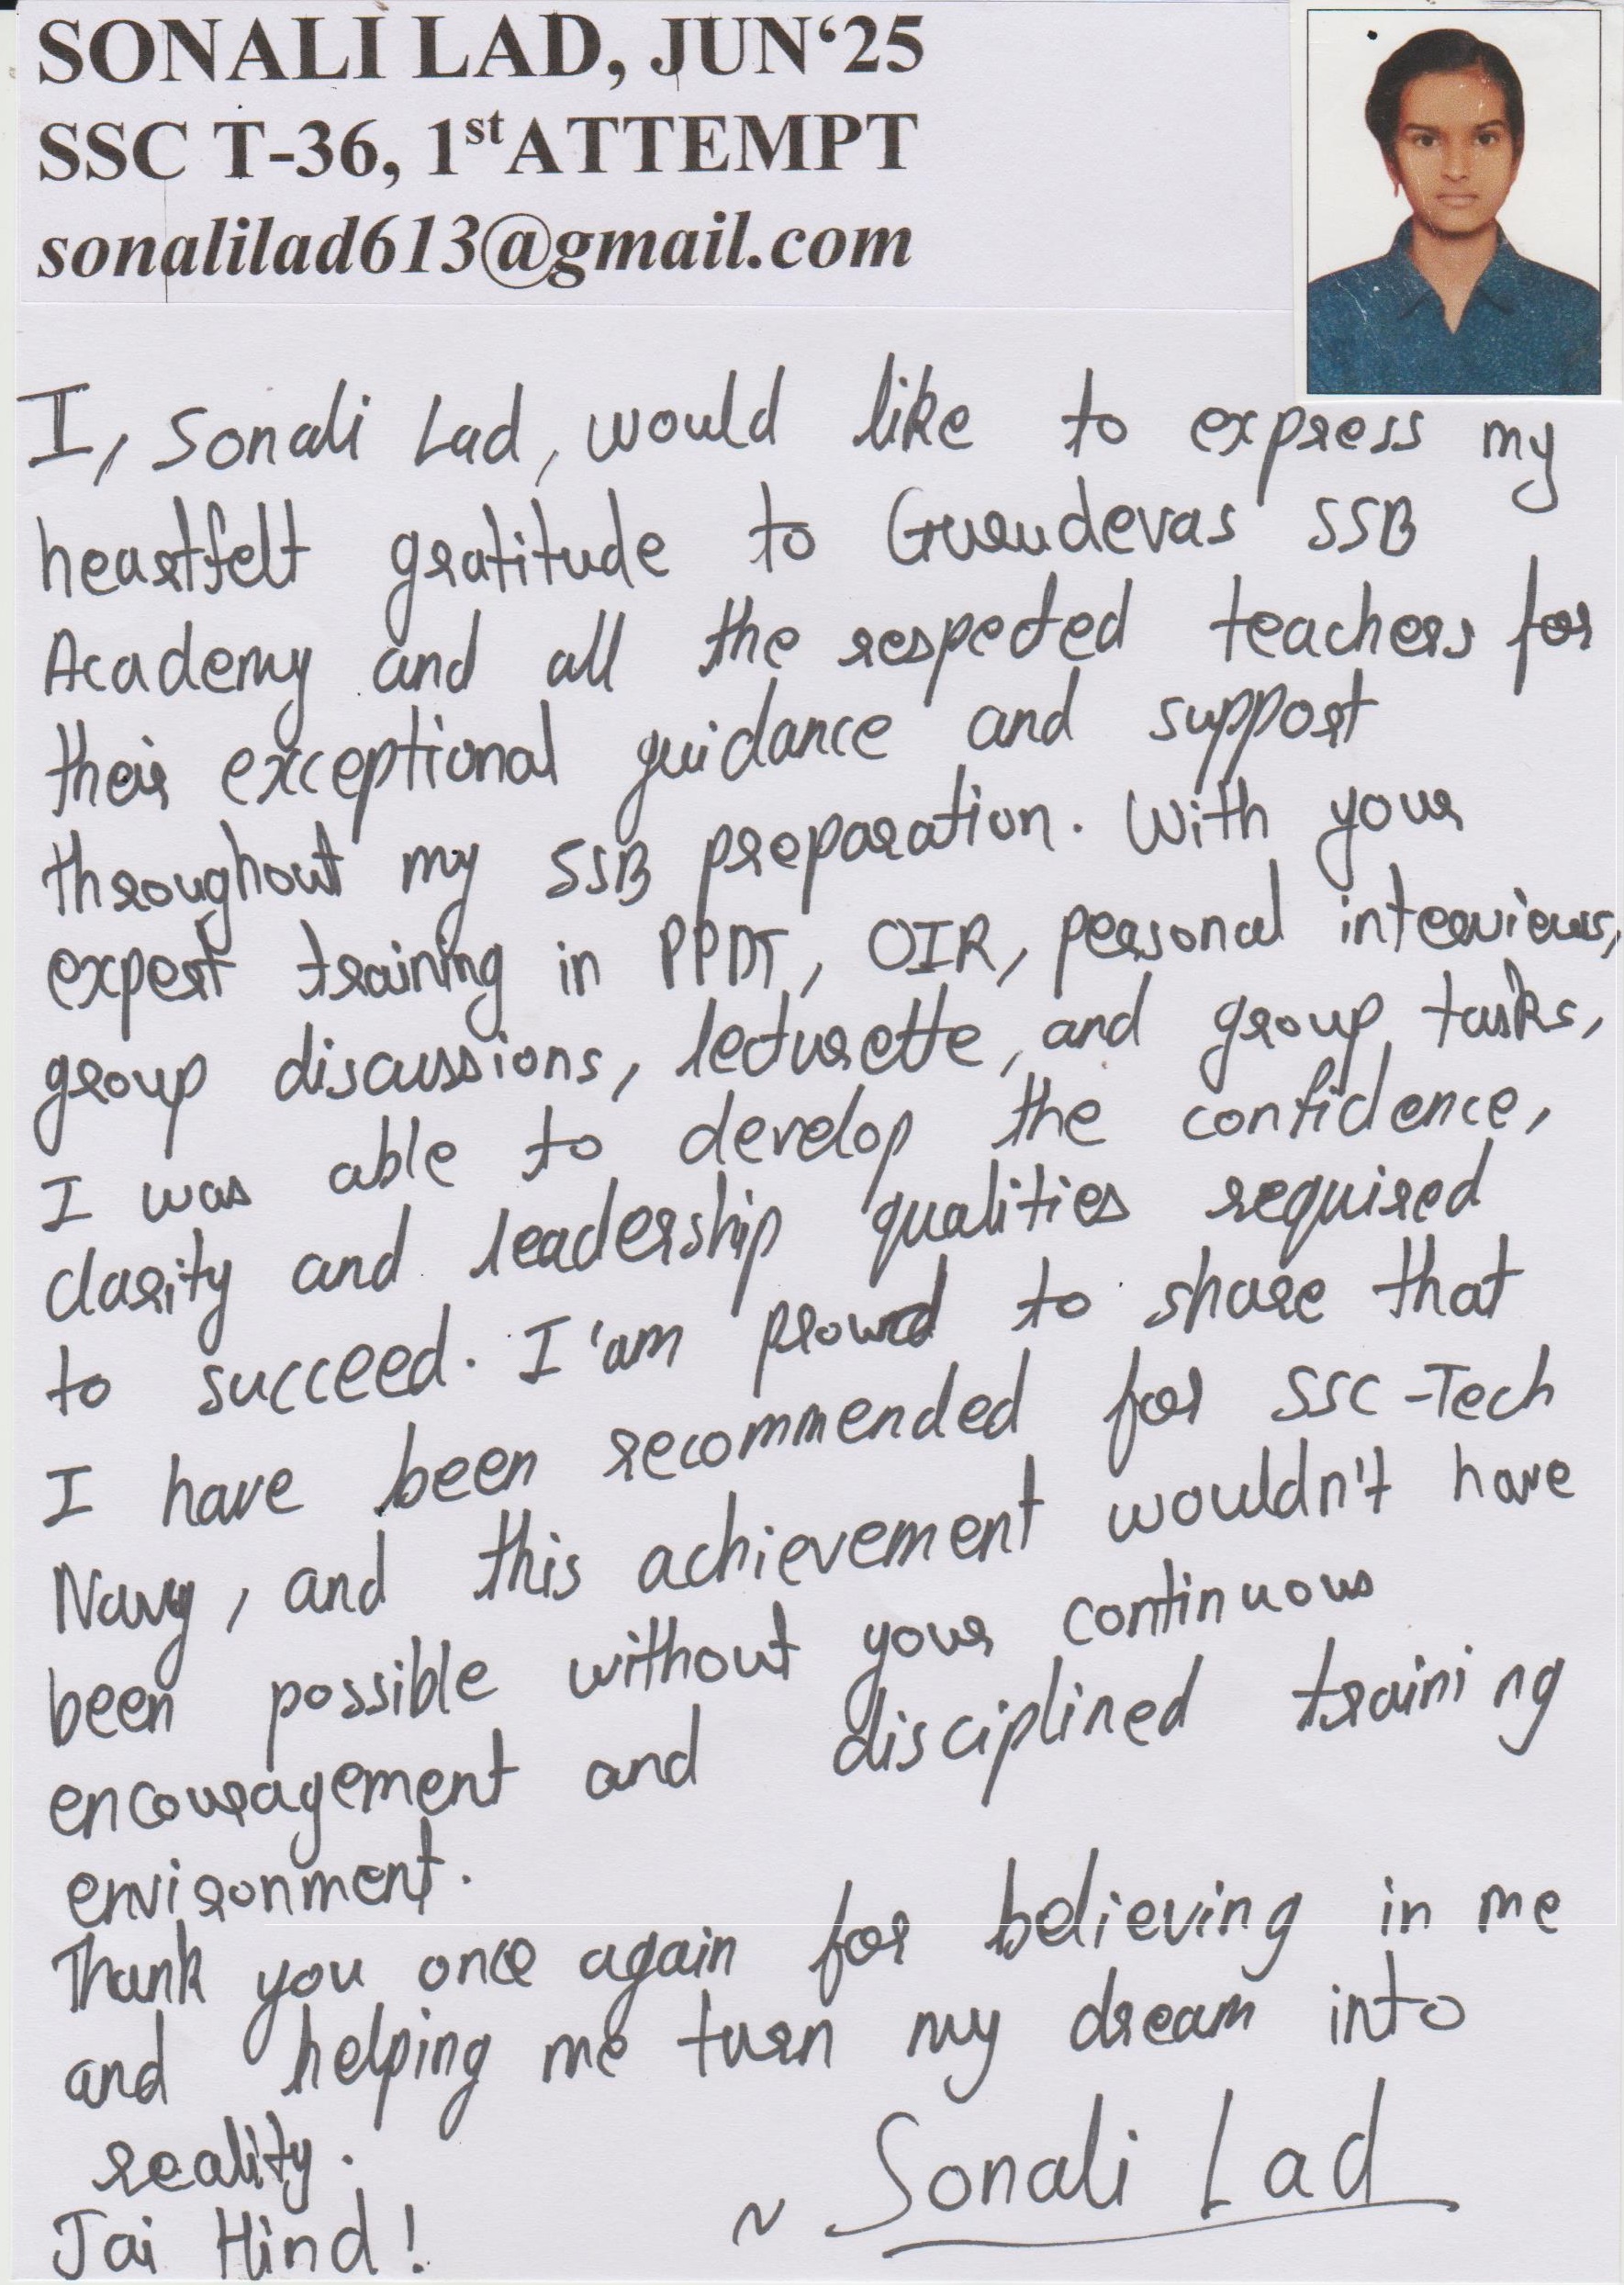 SONALI LAD, JUN‘25
SSC T-36, 1st ATTEMPT
sonalilad613@gmail.com
I, Sonali Lad, would like to express my
heartfelt gratitude to Gurudevas SSB
Academy and all the respected teachers for
their exceptional guidance and support
throughout my SSB preparation. With your
expert training in PPDT, OIR, personal interviews,
group discussions, lecturette, and group tasks,
I was able to develop the confidence,
clarity and leadership qualities required
to succeed. I 'am proud to share that
I have been recommended for SSC-Tech
Navy, and this achievement wouldn't have
been possible without your continuous
encouragement and disciplined training
environment.
Thank you once again for believing in me
and helping me turn my dream into
reality.
Jai Hind!
~ Sonali Lad